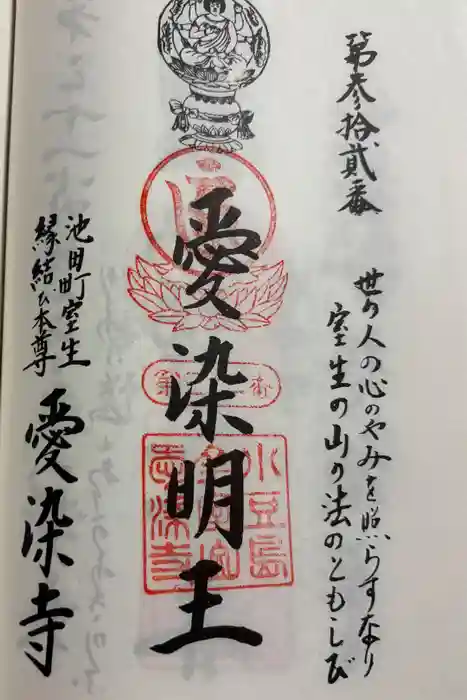 第参拾貳番
世の人の心のやみを照らすなり
室生の山の法のともしび
愛染明王
池田町室生
縁結び本尊
愛染寺
小豆島
愛染寺